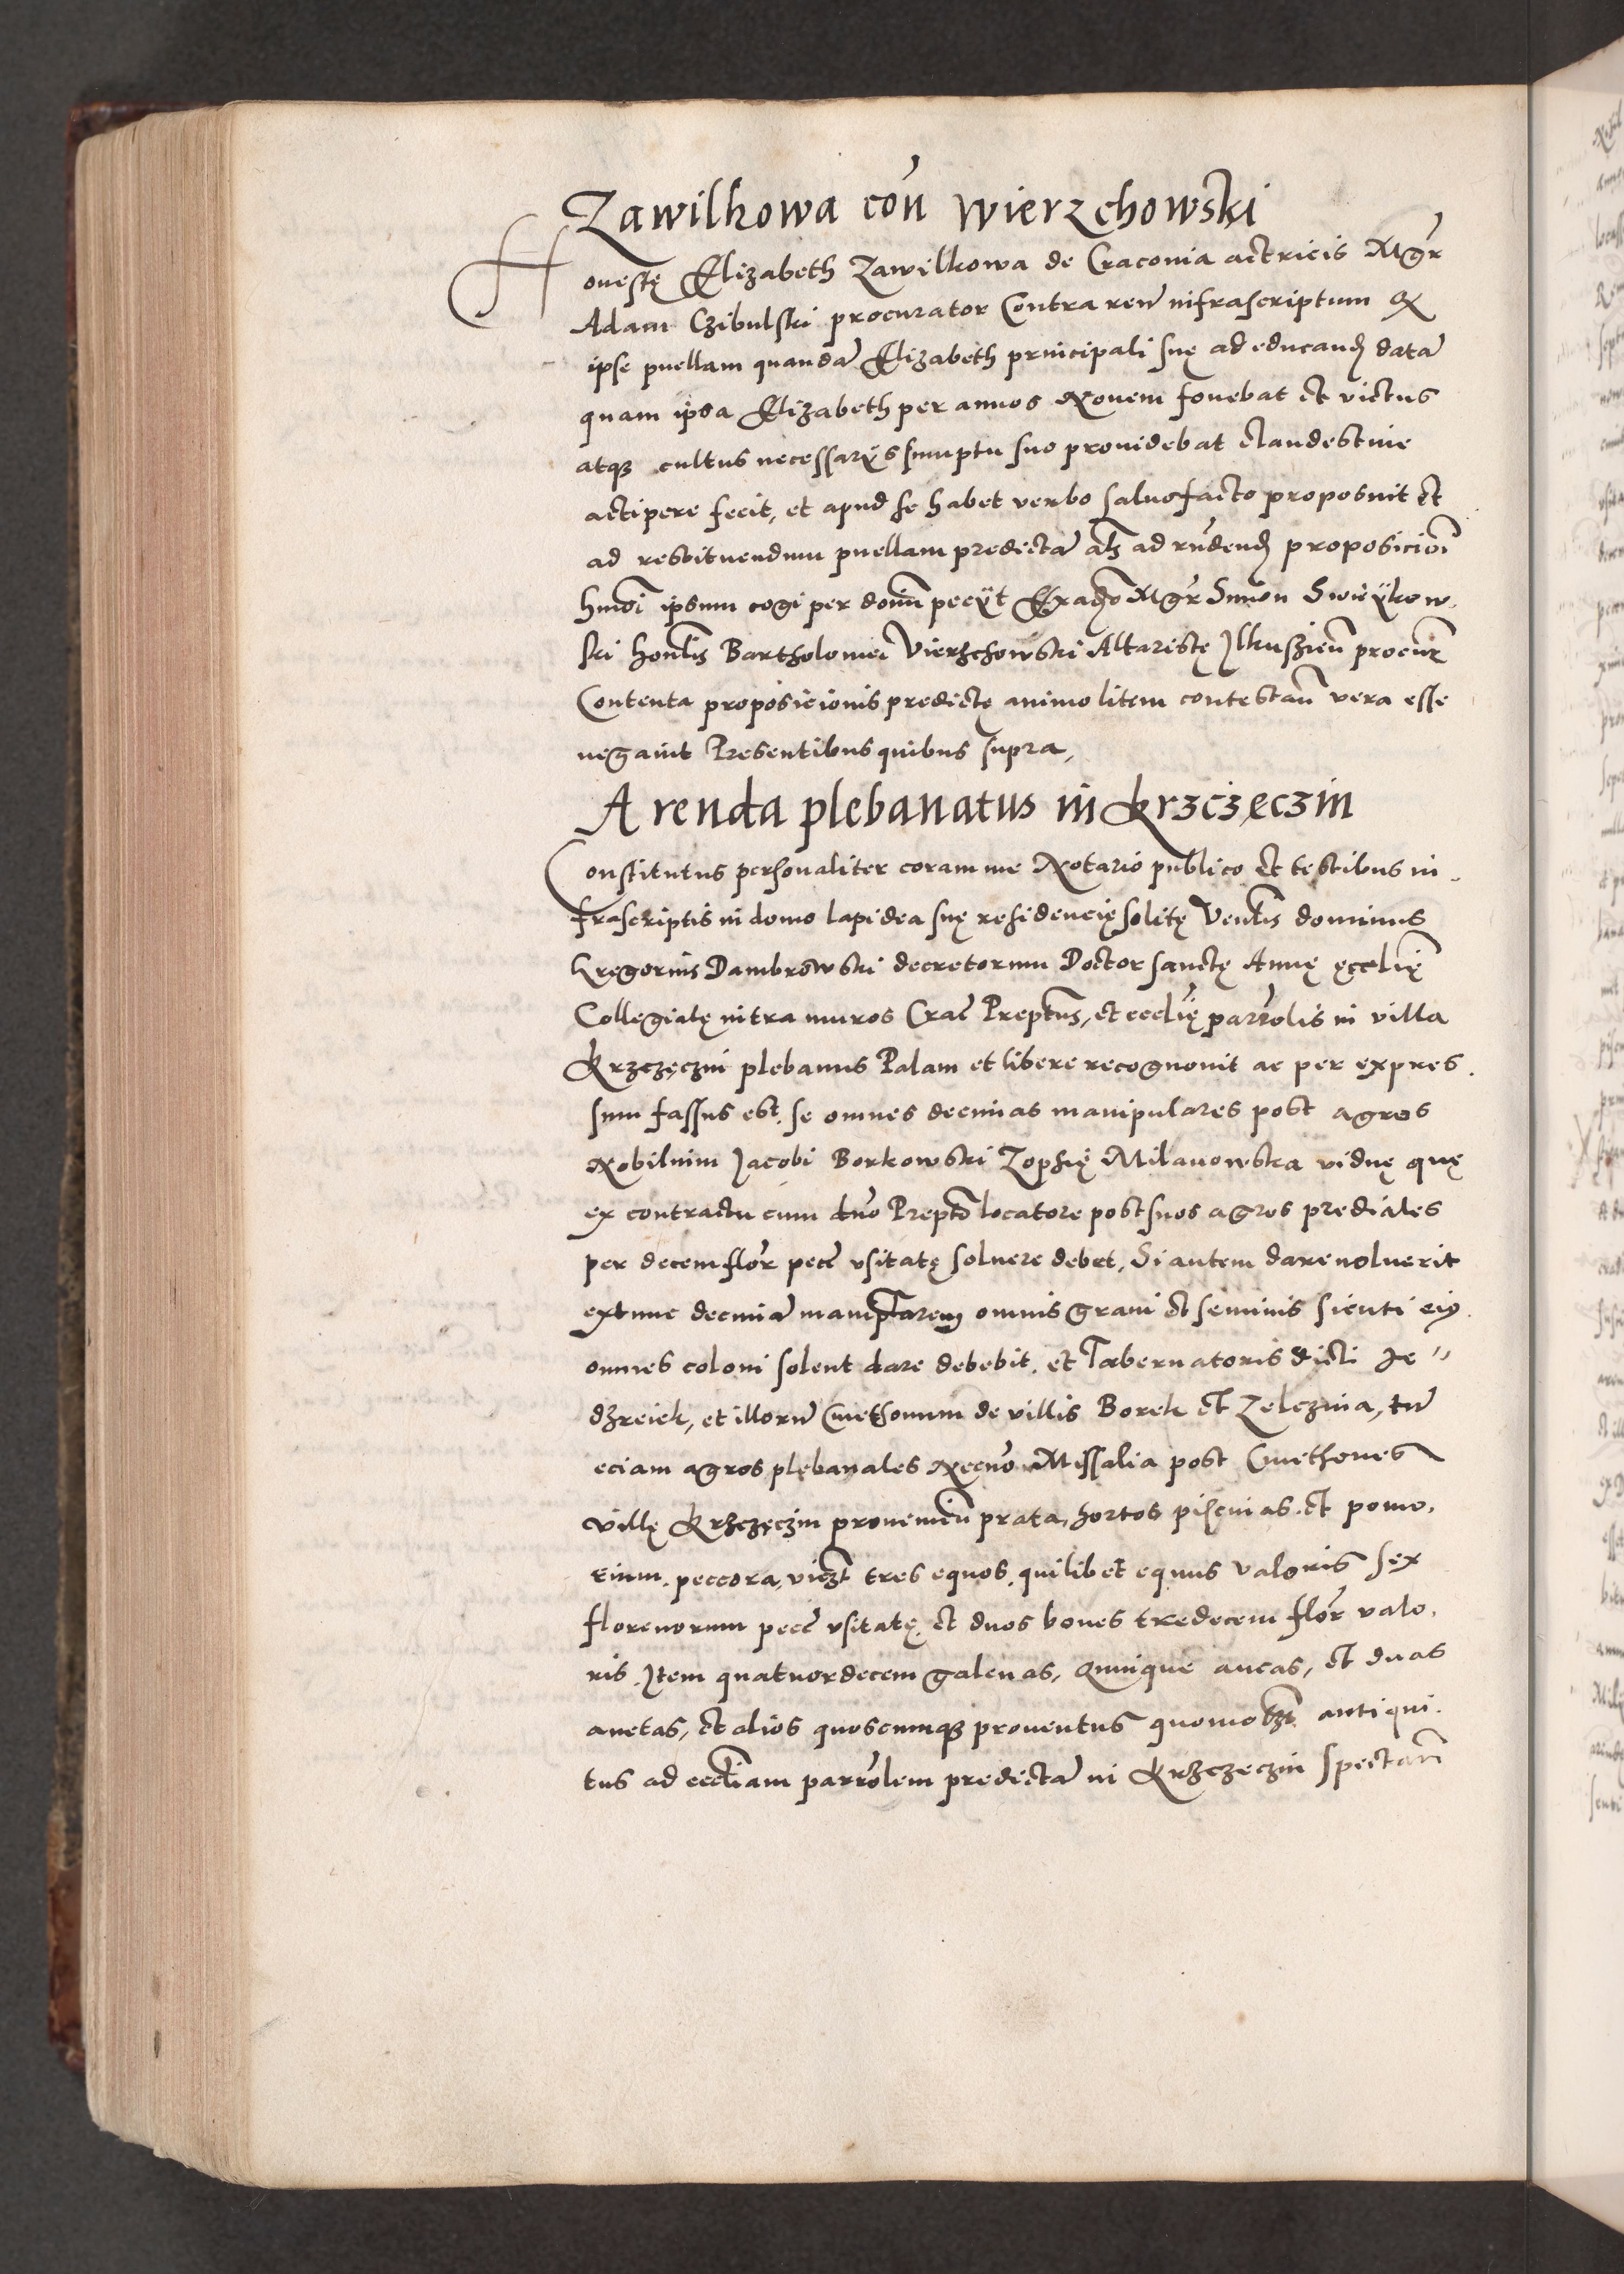 Zawilkowa coñ Wierzchowski
Honestę Elizabeth Zawilkowa de Craconia actricis Mgr̃
Adam Czibulski procurator Contra reũ infrascriptum Q
ipse puellam quandã Elizabeth principali suę ad educand datã
quam ipsa Elizabeth per annos Nouem fouebat et victus
atqꝫ cultus necessarÿs sumptu suo prouidebat clandestine
accipere fecit, et apud se habet verbo saluofacto proposuit et
ad restituendum puellam predictã als ad rñdend proposicioĩ
hmõi ipsum cogi per doım̃ pecÿt Exaduo Mgr̃ Simon Swiÿkow
ski honlis Bartholomei Vierzchowski Altaristę Ilkuszieñ procur̃
Contenta proposicionis predictę animo litem contestañ vera esse
negauit Presentibus quibus supra,
Arenda plebanatus in Krzczęczin
Constitutus personaliter coram me Notario publico et testibus in
frascriptis in domo lapidea suę residencię solitę Venlis dominus
Gregorius Dambrowski decretorum Doctor sanctę Annę ęcclię
Collegiatę intra muros Crac̃ Preptus, et ecclię parrolis in villa
Krzczęczin plebanus Palam et libere recognouit ac per expres
sum fassus est. se omnes decimas manipulares post agros
Nobilium Jacobi Borkowski Zophię Milanowska viduę quę
ex contractu cum dño Prepto locatore post suos agros prediales
per decem flor̃ pecc̃ vsitatę soluere debet, Si autem dare noluerit
extunc decimã maniplarem omnis grani et seminis sicuti eiꝰ
omnes coloni solent dare debebit. et Tabernatoris dicti Je
dzreiek, et illorũ Cmethonum de villis Borek et Zeleznia, tũ
eciam agros plebanales Necnõ Missalia post Cmethones
villę Krzczęczin prouenieñ prata, hortos piscinas et pomo
rium. peccora, viczt tres equos. quilibet equus valoris sex
florenorum pecc̃ vsitatę. et duos boues tredecem flor̃ valo
ris. Item quatuordecem galenas, Quinque aucas, et duas
anetas, et alios quoscumqꝫ prouentus quomolzt antiqui
tus ad eccliam parrolem predictã in Krzczeczin spectañ